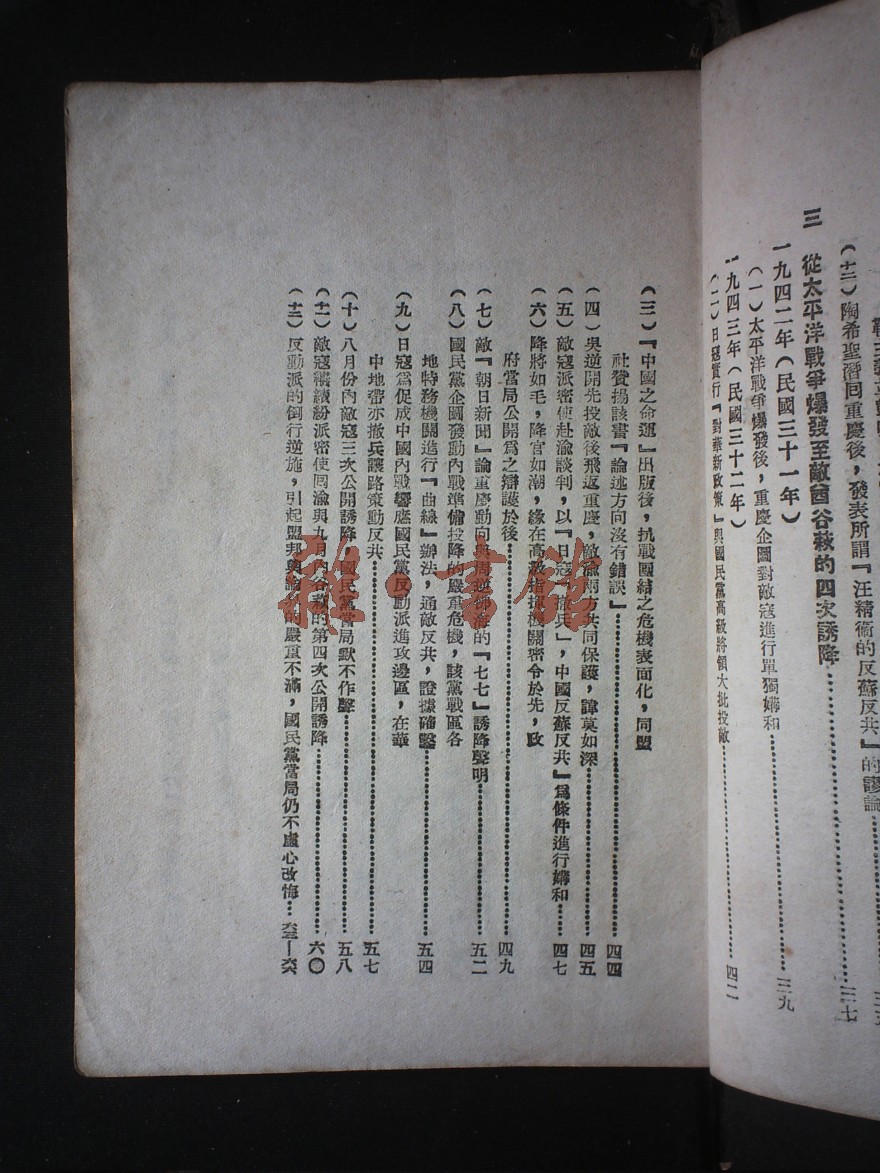 (十二)陶希聖潛囘重慶後,發表所謂『汪精衛的反蘇反共』的謬論
三 從太平洋戰爭爆發至敵酋谷萩的四次誘降……三七
一九四二年(民國三十一年)
(一)太平洋戰爭爆發後,重慶企圖對敵寇進行單獨媾和……三九
一九四三年(民國三十二年)
(二)日寇實行『對華新政策』與國民黨高級將領大批投敵……四二
(三)『中國之命運』出版後,抗戰團結之危機表面化,同盟
社贊揚該書『論述方向沒有錯誤』……四四
(四)吳逆開先投敵後飛返重慶,敵渝兩方共同保護,諱莫如深……四五
(五)敵寇派密使赴渝談判,以『日寇撤兵』,中國反蘇反共』爲條件進行媾和……四七
(六)降將如毛,降官如潮,緣在高級指揮機關密令於先,政
府當局公開爲之辯護於後……四九
(七)敵『朝日新聞』論重慶動向與周逆佛海的『七七』誘降聲明……五二
(八)國民黨企圖發動內戰準備投降的嚴重危機,該黨戰區各
地特務機關進行『曲線』辦法,通敵反共,證據確鑿……五四
(九)日寇爲促成中國內戰響應國民黨反動派進攻邊區,在華
中地帶亦撤兵讓路策動反共……五七
(十)八月份內敵寇三次公開誘降,國民黨當局默不作聲……五八
(十一)敵寇繼續紛派密使囘渝與九月內谷萩的第四次公開誘降……六〇
(十二)反動派的倒行逆施,引起盟邦輿論的嚴重不滿,國民黨當局仍不虛心改悔…
雅·書館